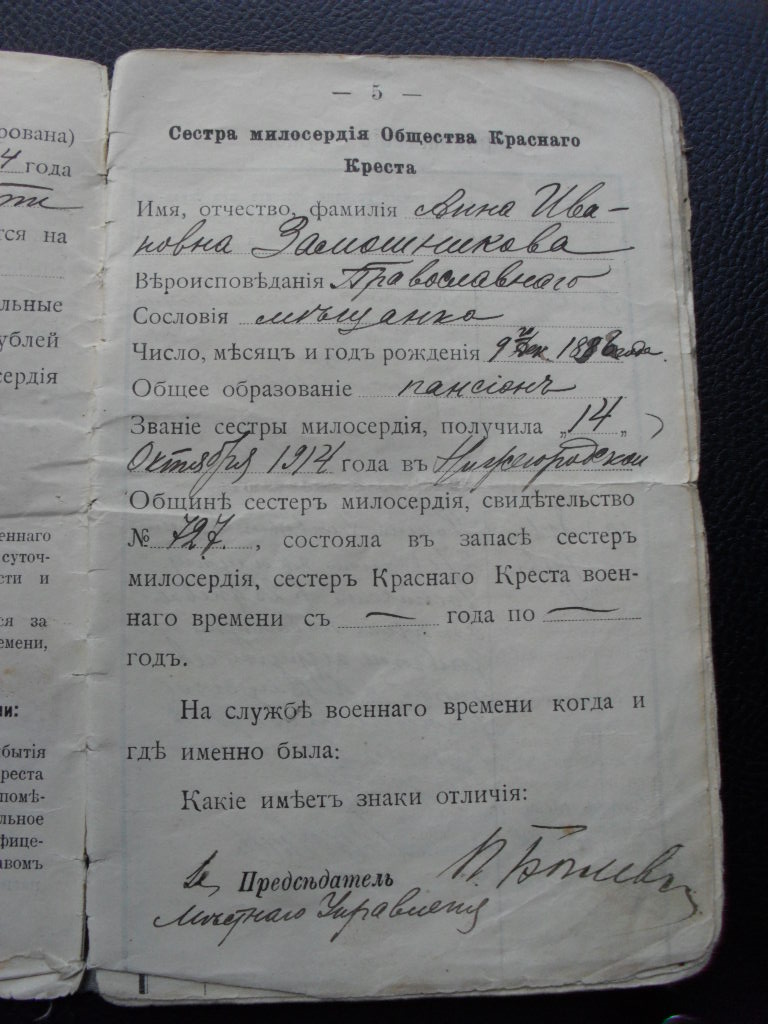 рована)
4 года
ся на
льные
ублей
сердія
еннаго
суточ-
сти и
ся за
емени,
ии:
бытія
реста
помѣ-
льное
фице-
авомъ
— 5 —
Сестра милосердія Общества Краснаго
Креста
Имя, отчество, фамилія Анна Ива-
новна Замошникова
Вѣроисповѣданія Православнаго
Сословія мѣщанка
Число, мѣсяцъ и годъ рожденія 9го Дек. года.
Общее образованіе пансіонъ
Званіе сестры милосердія, получила „14„
Октября 1914 года въ Нижегородской
Общинѣ сестеръ милосердія, свидѣтельство
№ 727. , состояла въ запасѣ сестеръ
милосердія, сестеръ Краснаго Креста воен-
наго времени съ — года по —
годъ.
На службѣ военнаго времени когда и
гдѣ именно была:
Какіе имѣетъ знаки отличія:
Предсѣдатель
Мѣстнаго Управленія